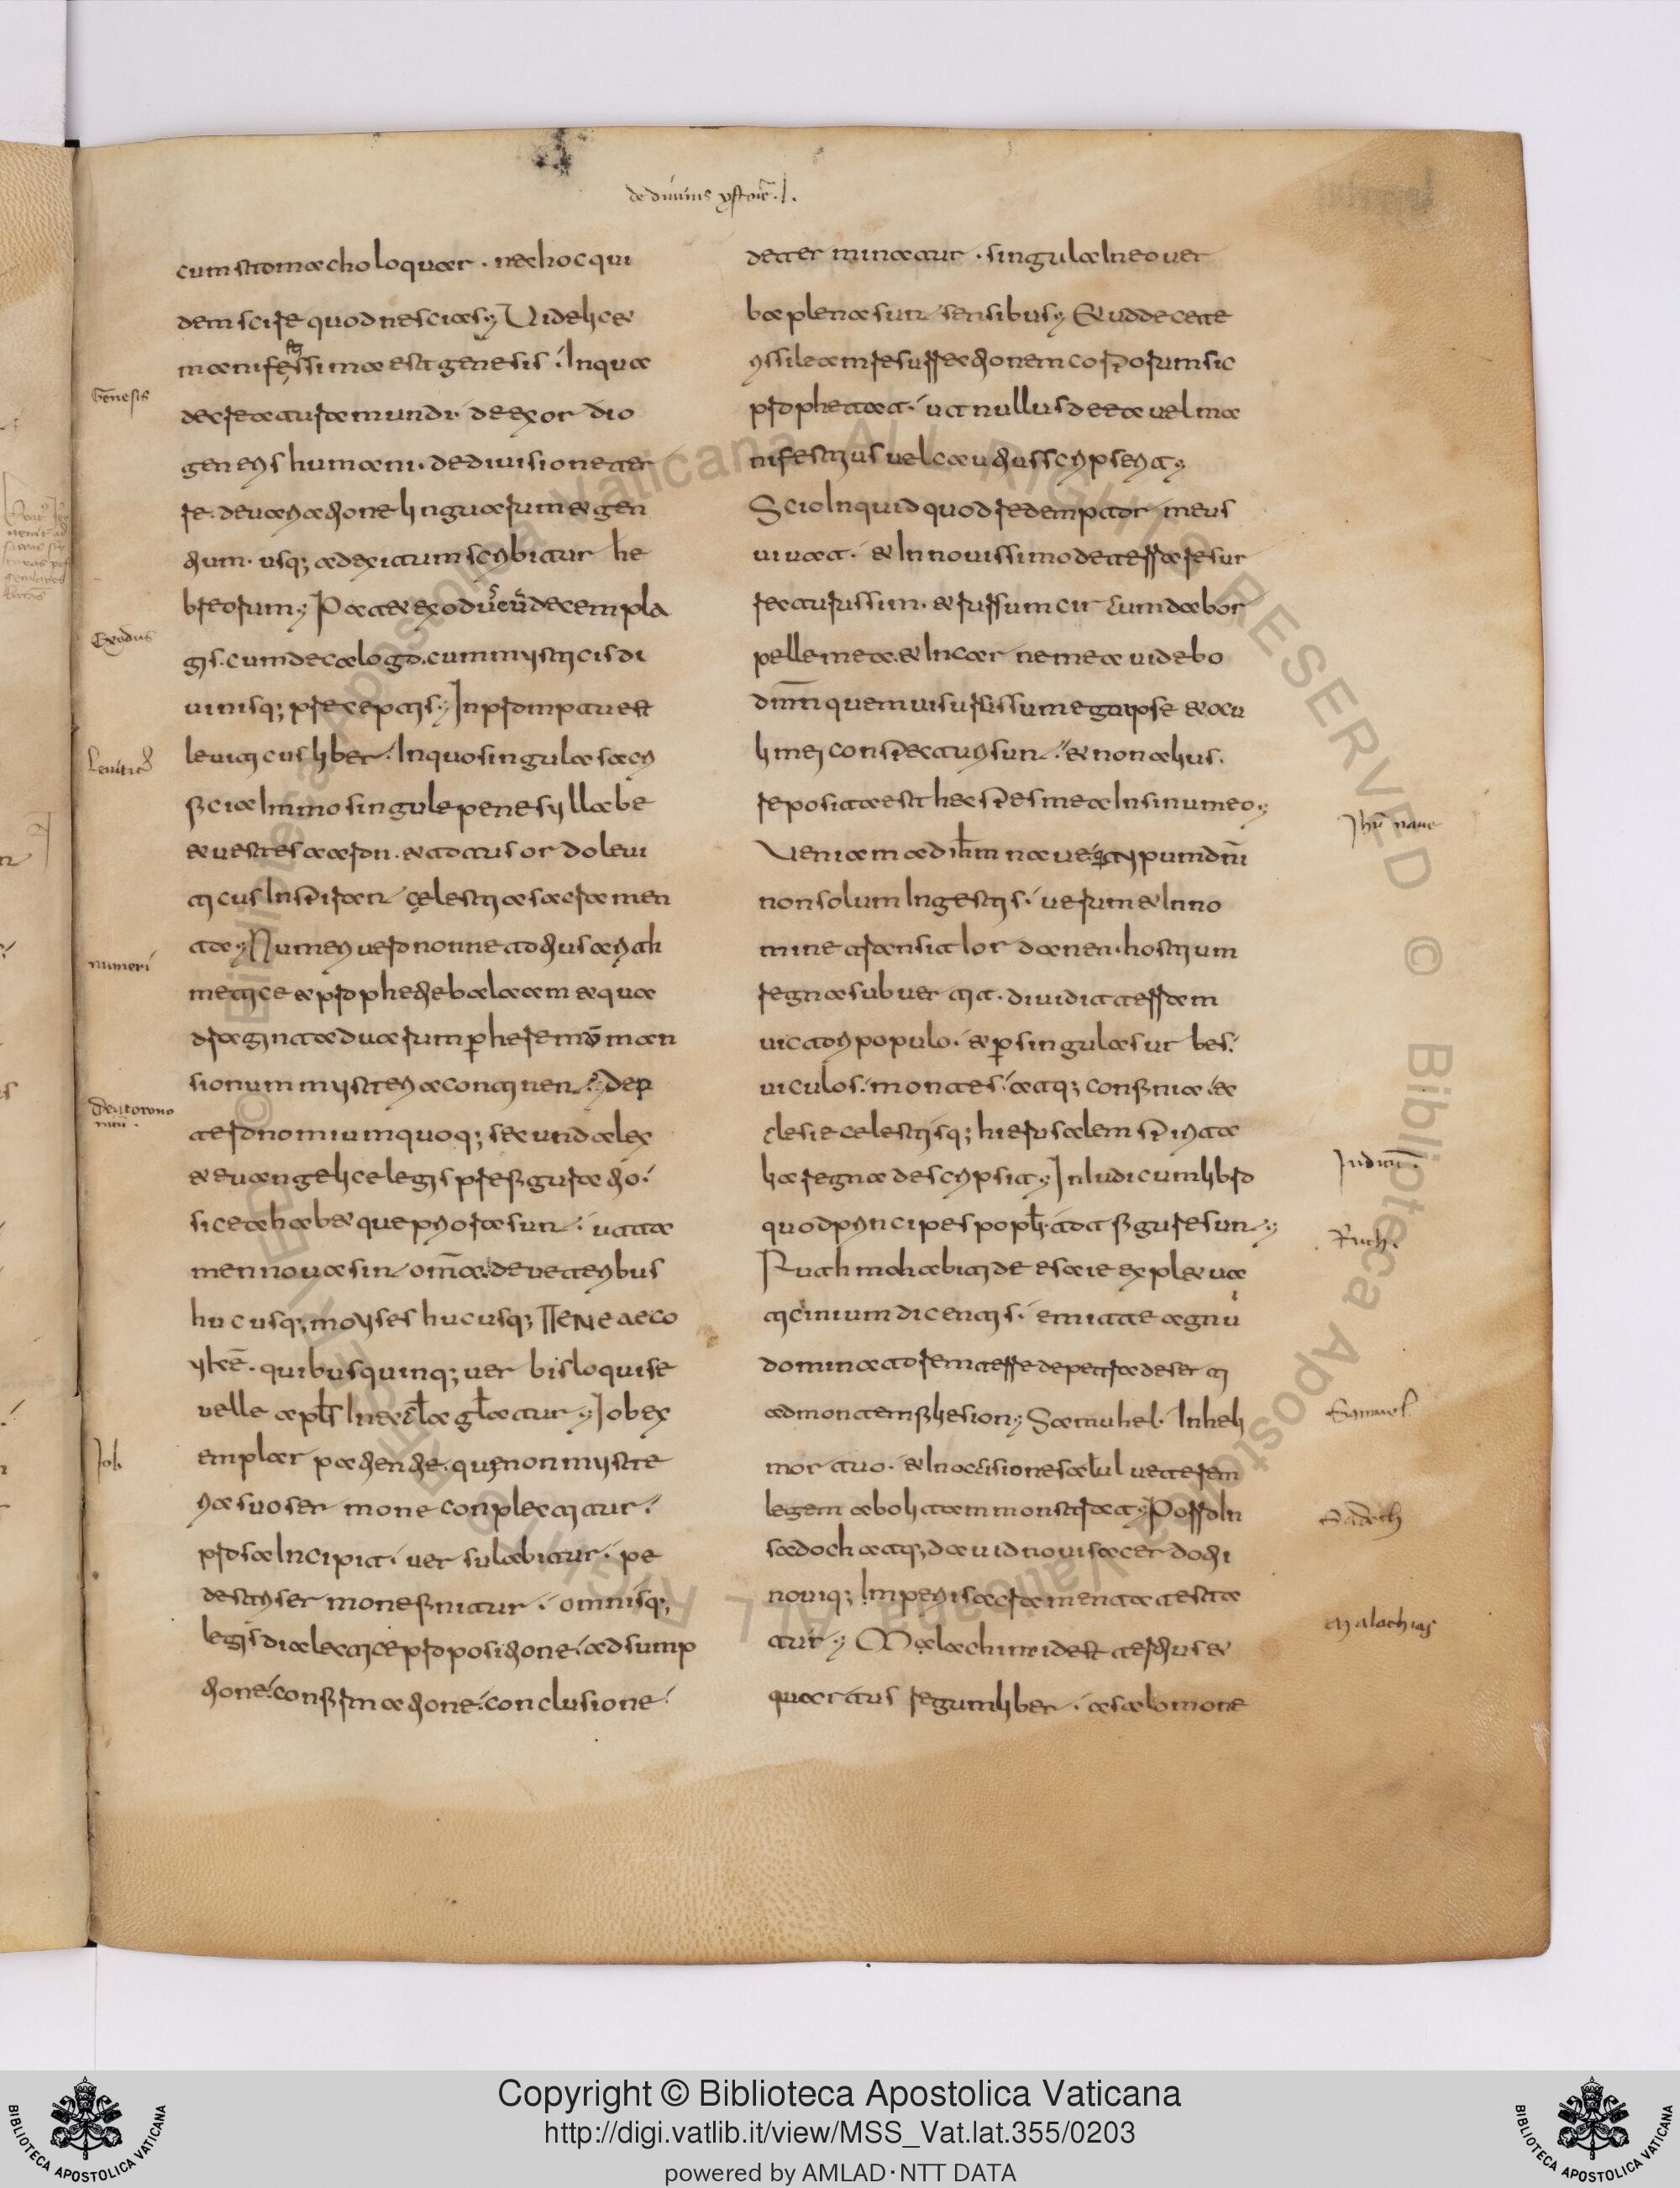 de diuinis ystoriis .l.
cum stomacho loquar . nec hoc qui
dem scire quod nescias; Videlicet
manifestissima est genesis . In qua
de creatura mundi . de exordio
generis humani . de diuisione ter
re . de uariatione linguarum et gen
tium . usq; ad exitum scribitur he
breorum; Patet exodus cum decem pla
gis . cum decalogo . cum mysticis di
uinisq; preceptis; In promptu est
leuiticus liber . In quo singula sacri
ficia Immo singule pene syllabe
et uestes aaron . et totus ordo leui
ticus Inspirant celestia sacramen
ta; Numeri uero nonne totius arith
metice et prophetie balaam et qua
draginta duarum per heremum man
sionum mysteria continent; Deu
teronomium quoq; secunda lex
et euangelice legis prefiguratio .
sic ea habet que priora sunt . ut ta
men noua sint omnia de ueteribus
hucusq; moyses hucusq; ΠΕΝΤΕΑΤΕCO
quibus quinq; uerbis loqui se
uelle apostolus In ecclesia gloriatur; Iob ex
emplar patientie . que non myste
ria suo sermone complectitur .
prosa Incipit . uersu labitur . pe
destri sermone finitur . omnisq;
legis dialectice propositione . adsump
tione . confirmatione . conclusione .
determinatur . singula In eo uer
ba plena sunt sensibus; Et ut de cete
ris sileam resurrectionem corporum sic
prophetat . ut nullus de ea uel ma
nifestius uel cautius scripserit;
Scio Inquid quod redemptor meus
uiuat . et In nouissimo de terra resur
recturus sim . et rursum circumdabor
pelle mea . et In carne mea uidebo
deum quem uisurus sum ego ipse et ocu
li mei conspecturi sunt . et non alius .
reposita est hec spes mea In sinu meo;
Veniam ad ihesum naue . qui typum domini
non solum In gestis . uerum et In no
mine transit Iordanen . hostium
regna subuertit . diuidit terram
uictori populo . et per singulas urbes .
uiculos . montes . atq; confinia . ec
clesie celestisq; hierusalem spirita
lia regna descripsit; In Iudicum libro
quod principes populi . tot figure sunt;
Ruth mohabitide esaie expleuit ua
ticinium dicentis . emitte agnum
domina torem terre de petra deserti
ad montem filie sion; Samuhel . In heli
mortuo . et In occisione saul ueterem
legem abolitam monstrat; Porro In
sadoch atq; dauid noui sacerdotii
nouiq; Imperii sacramenta testa
tur; Malachim id est tertius et
quartus regum liber . a salomone
Genesis
Exodus
Leuiticus
numeri
deutorono
mium .
Job
Jhesu naue
Judicum .
Ruth .
Samuel
Sadoch
Malachias
Copyright © Biblioteca Apostolica Vaticana
http://digi.vatlib.it/view/MSS_Vat.lat.355/0203
powered by AMLAD·NTT DATA
BIBLIOTECA APOSTOLICA VATICANA
BIBLIOTECA APOSTOLICA VATICANA